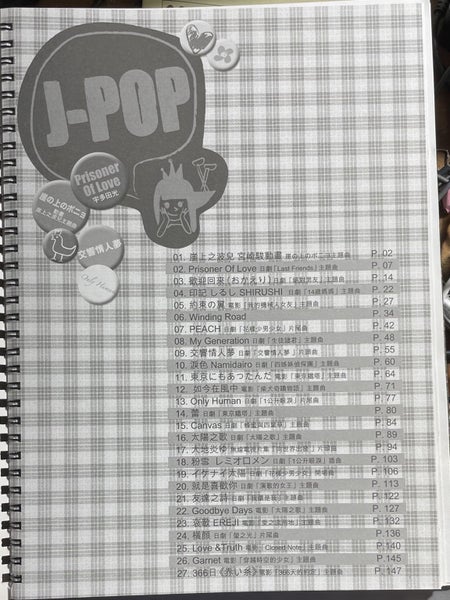 J-POP
Prisoner
Of Love
宇多田光
崖の上のポニョ
崖上之波兒主題曲
交響情人夢
Only Human
01. 崖上之波兒 宮崎駿動畫 崖の上のポニョ主題曲 P. 02
02. Prisoner Of Love 日劇「Last Friends」主題曲 P. 07
03. 歡迎回來 (おかえり) 日劇「絕對男友」主題曲 P. 14
04. 印記 しるし SHIRUSHI 日劇「14歲媽媽」主題曲 P. 22
05. 約束の翼 電影「我的機械人女友」主題曲 P. 27
06. Winding Road P. 34
07. PEACH 日劇「花樣少男少女」片尾曲 P. 42
08. My Generation 日劇「生徒諸君」主題曲 P. 48
09. 交響情人夢 日劇「交響情人夢」片尾曲 P. 55
10. 淚色 Namidairo 日劇「四姊妹偵探團」主題曲 P. 60
11. 東京にもあったんだ 電影「東京鐵塔」主題曲 P. 64
12. 如今在風中 電影「柴犬奇蹟物語」主題曲 P. 71
13. Only Human 日劇「1公升眼淚」片尾曲 P. 77
14. 蕾 日劇「東京鐵塔」主題曲 P. 80
15. Canvas 日劇「蜂蜜與四葉草」主題曲 P. 84
16. 太陽之歌 日劇「太陽之歌」主題曲 P. 89
17. 大地炎伴 P. 94
18. 粉雪 レミオロメン 日劇「1公升眼淚」插曲 P. 103
19. イケナイ太陽 日劇「花樣少男少女」開場曲 P. 106
20. 就是喜歡你 日劇「演歌的女王」主題曲 P. 113
21. 友達之詩 主題曲 P. 122
22. Goodbye Days 電影「太陽之歌」主題曲 P. 127
23. 哀歌 EREJI 電影「愛之流刑地」主題曲 P. 132
24. 橫顏 日劇「瞳之光」片尾曲 P. 136
25. Love &Truth 電影「Closed Note」主題曲 P. 140
26. Garnet 電影「穿越時空的少女」主題曲 P. 145
27. 366日《赤い糸》電影「366天的約定」主題曲 P. 147